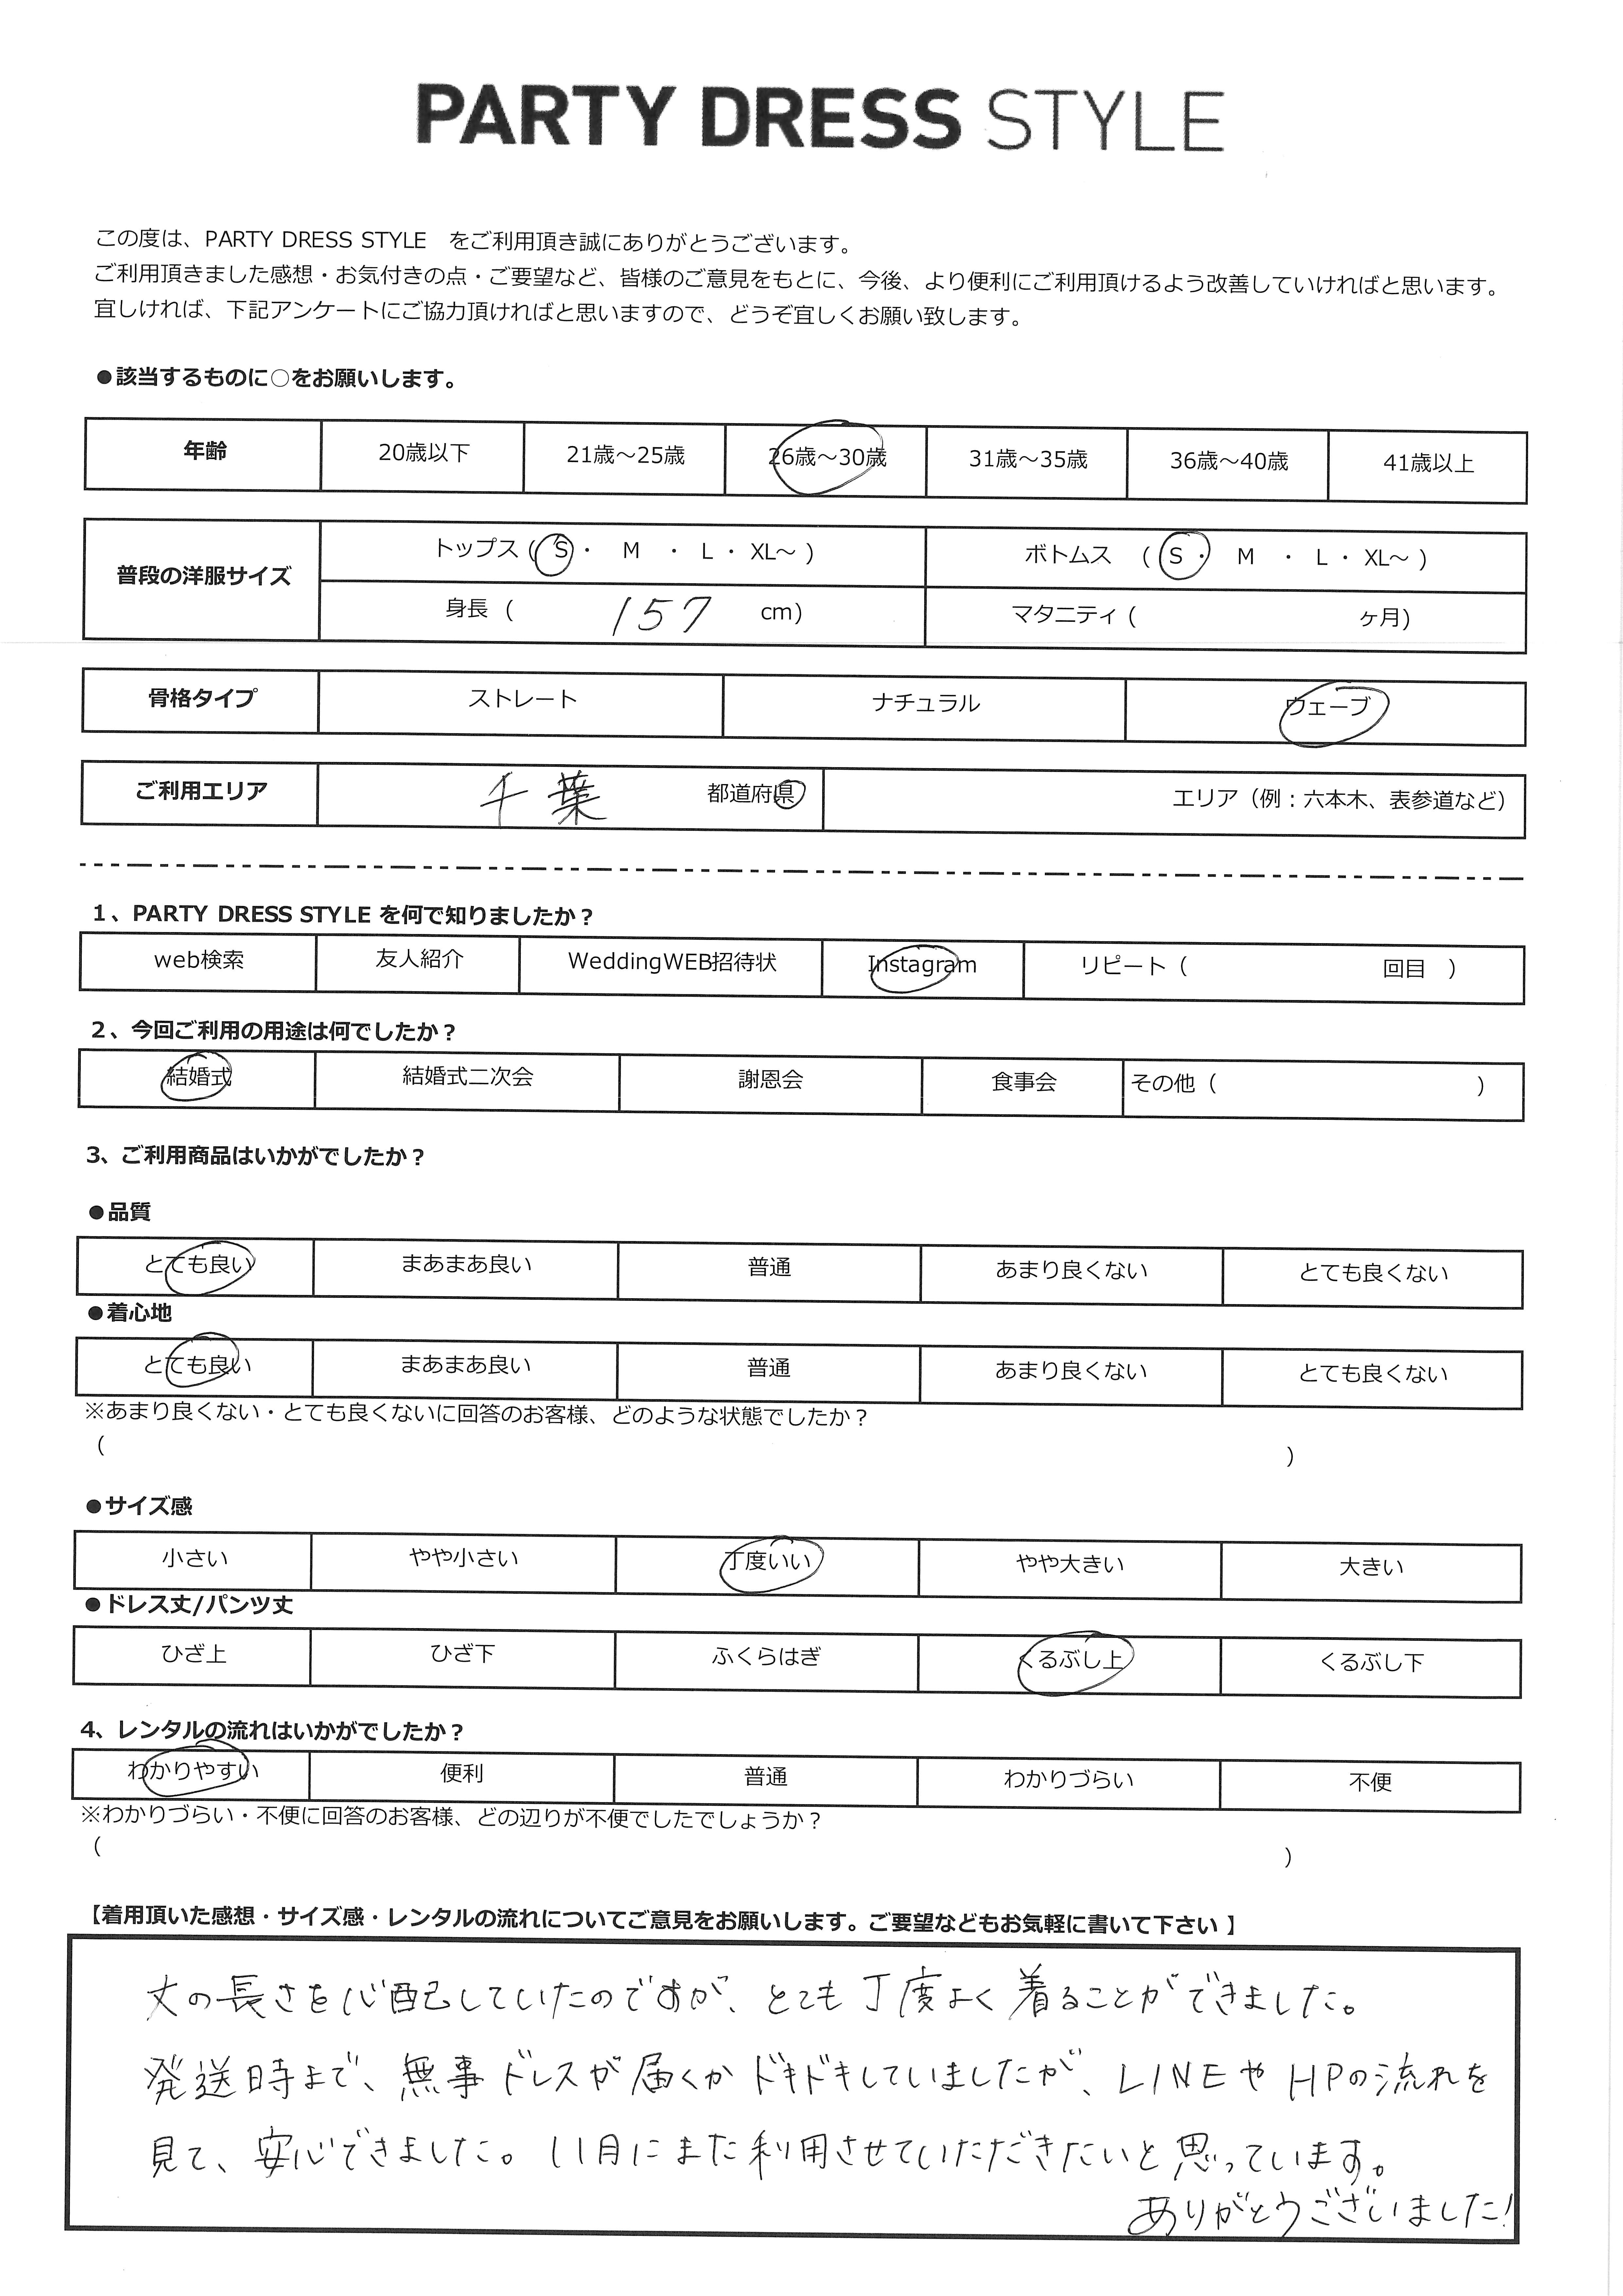 PARTY DRESS STYLE
この度は、PARTY DRESS STYLE　をご利用頂き誠にありがとうございます。
ご利用頂きました感想・お気付きの点・ご要望など、皆様のご意見をもとに、今後、より便利にご利用頂けるよう改善していければと思います。
宜しければ、下記アンケートにご協力頂ければと思いますので、どうぞ宜しくお願い致します。
●該当するものに○をお願いします。
年齢 20歳以下 21歳～25歳 26歳～30歳 31歳～35歳 36歳～40歳 41歳以上
普段の洋服サイズ トップス ( S ・ M ・ L ・ XL～ ) ボトムス ( S ・ M ・ L ・ XL～ )
身長 ( 157 cm) マタニティ ( ヶ月)
骨格タイプ ストレート ナチュラル ウェーブ
ご利用エリア 千葉 都道府県 エリア（例：六本木、表参道など）
1、PARTY DRESS STYLE を何で知りましたか？
web検索 友人紹介 WeddingWEB招待状 Instagram リピート（ 回目 ）
2、今回ご利用の用途は何でしたか？
結婚式 結婚式二次会 謝恩会 食事会 その他（ ）
3、ご利用商品はいかがでしたか？
●品質
とても良い まあまあ良い 普通 あまり良くない とても良くない
●着心地
とても良い まあまあ良い 普通 あまり良くない とても良くない
※あまり良くない・とても良くないに回答のお客様、どのような状態でしたか？
（ ）
●サイズ感
小さい やや小さい 丁度いい やや大きい 大きい
●ドレス丈/パンツ丈
ひざ上 ひざ下 ふくらはぎ くるぶし上 くるぶし下
4、レンタルの流れはいかがでしたか？
わかりやすい 便利 普通 わかりづらい 不便
※わかりづらい・不便に回答のお客様、どの辺りが不便でしたでしょうか？
（ ）
【着用頂いた感想・サイズ感・レンタルの流れについてご意見をお願いします。ご要望などもお気軽に書いて下さい】
丈の長さを心配していたのですが、とても丁度よく着ることができました。
発送時まで、無事ドレスが届くかドキドキしていましたが、LINEやHPの流れを
見て、安心できました。11月にまた利用させていただきたいと思っています。
ありがとうございました!